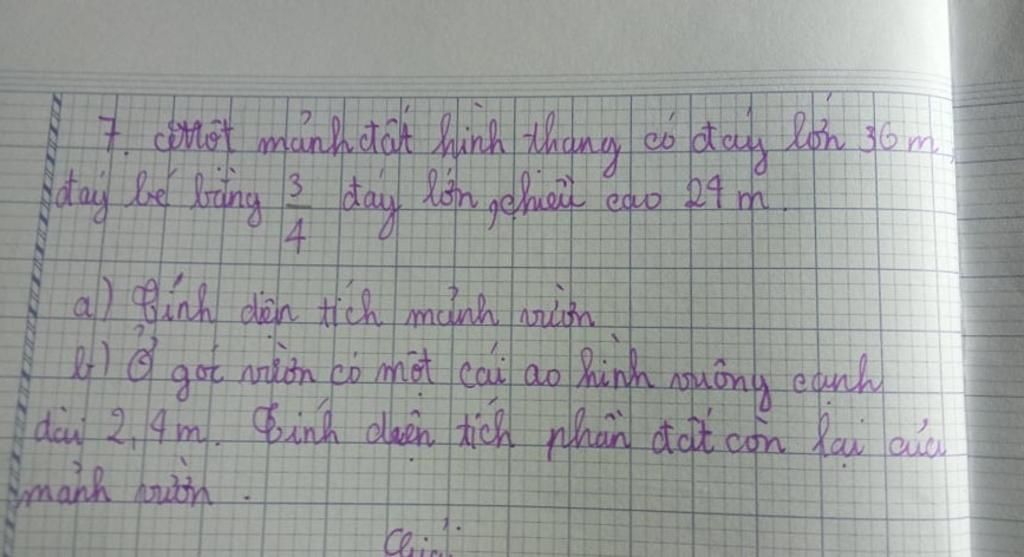 7. Một mảnh đất hình thang có đáy lớn 36 m,
đáy bé bằng 3/4 đáy lớn, chiều cao 24 m.
a) Tính diện tích mảnh vườn
b) Ở góc vườn có một cái ao hình vuông cạnh
dài 2,4 m. Tính diện tích phần đất còn lại của
mảnh vườn.